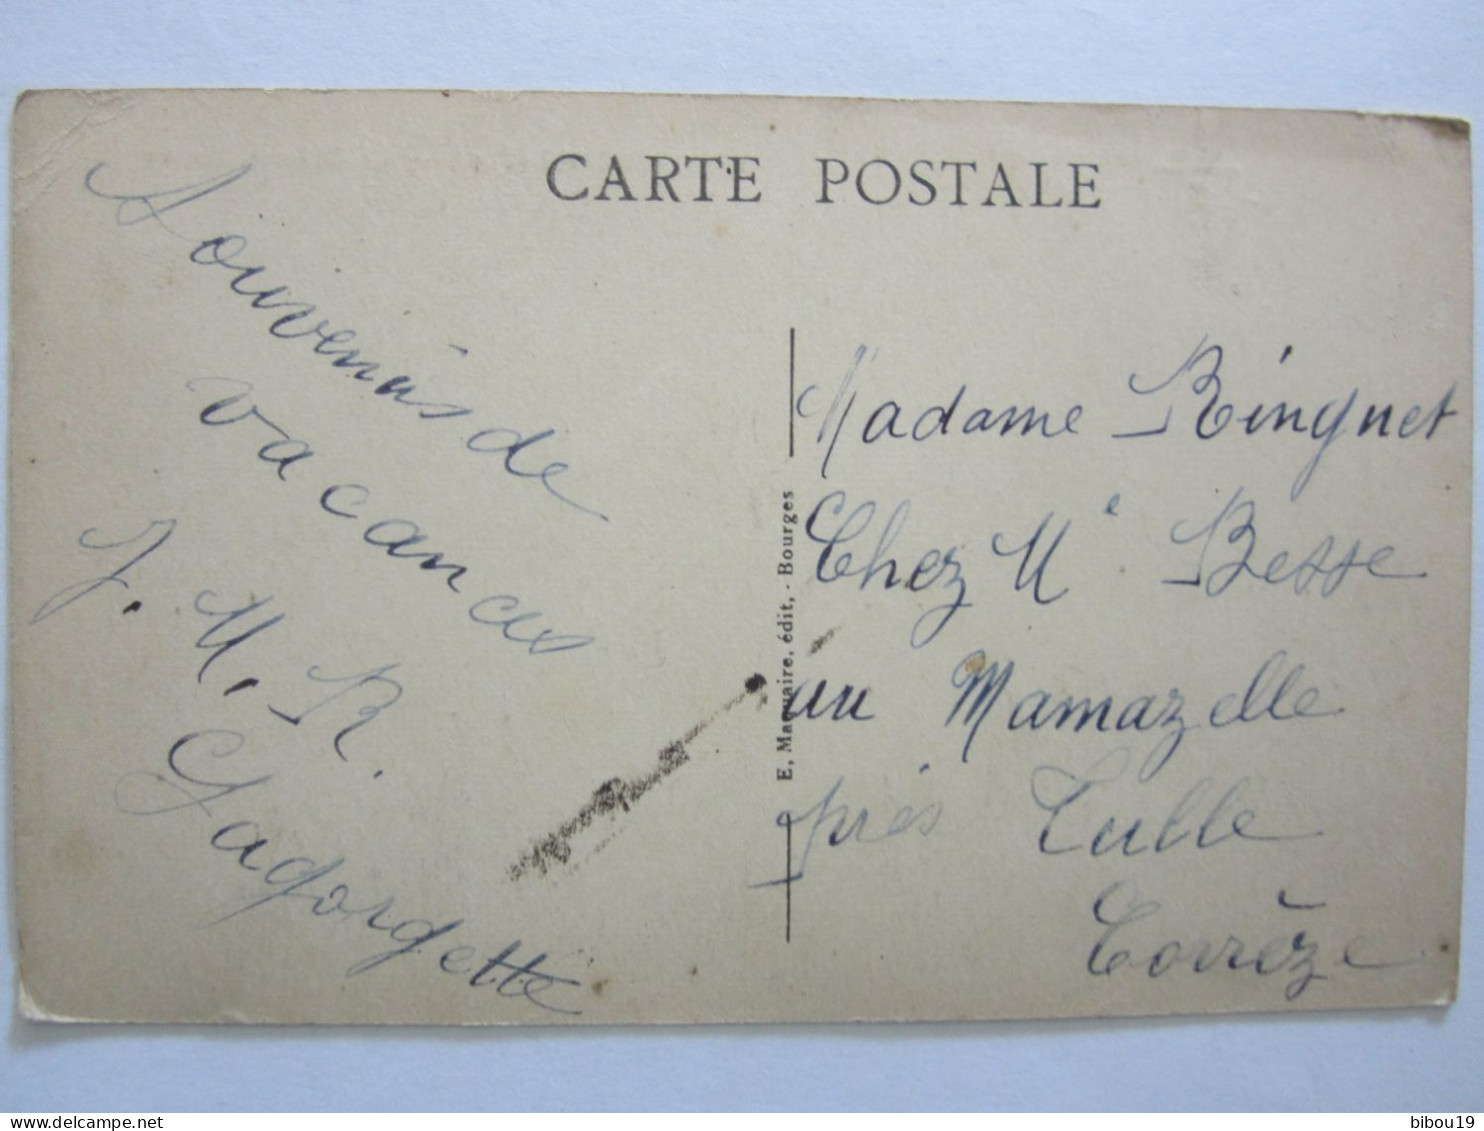 CARTE POSTALE
Souvenirs de
vacances
J. M. R.
Gagorgette
E. Maquaire, édit, - Bourges
Madame Ringuet
Chez Mᵉ Besse
au Mamazelle
près Tulle
Corrèze
bibou19